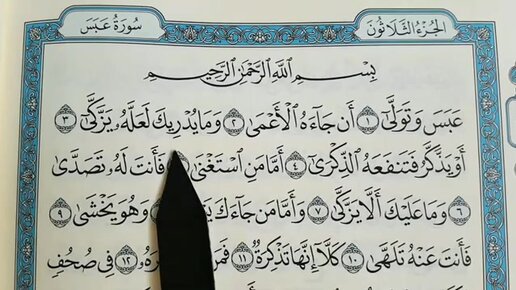 الجُزْءُ الثَّلَاثُونَ
سُورَةُ عَبَسَ
بِسْمِ ٱللَّهِ ٱلرَّحْمَٰنِ ٱلرَّحِيمِ
عَبَسَ وَتَوَلَّىٰٓ ١ أَن جَآءَهُ ٱلْأَعْمَىٰ ٢ وَمَا يُدْرِيكَ لَعَلَّهُۥ يَزَّكَّىٰٓ ٣
أَوْ يَذَّكَّرُ فَتَنفَعَهُ ٱلذِّكْرَىٰٓ ٤ أَمَّا مَنِ ٱسْتَغْنَىٰ فَأَنتَ لَهُۥ تَصَدَّىٰ
٦ وَمَا عَلَيْكَ أَلَّا يَزَّكَّىٰ ٧ وَأَمَّا مَن جَآءَكَ وَهُوَ يَخْشَىٰ ٩
فَأَنتَ عَنْهُ تَلَهَّىٰ ١٠ كَلَّآ إِنَّهَا تَذْكِرَةٌ ١١ فَمَن ١٢ فِى صُحُفٍ